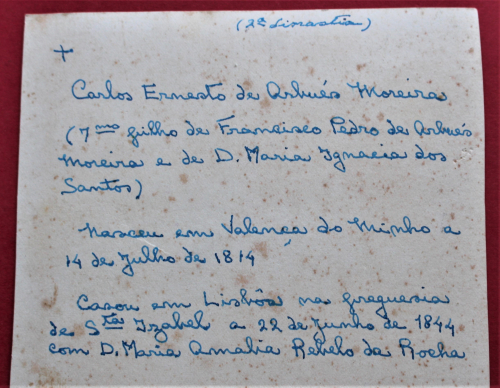 (2ª Dinastia)
+
Carlos Ernesto de Arbués Moreira
(7mo filho de Francisco Pedro de Arbués
Moreira e de D. Maria Ignacia dos
Santos)
Nasceu em Valença do Minho a
14 de Julho de 1814
Casou em Lisbôa na freguesia
de Sta Izabel a 22 de Junho de 1844
com D. Maria Amalia Rebelo da Rocha